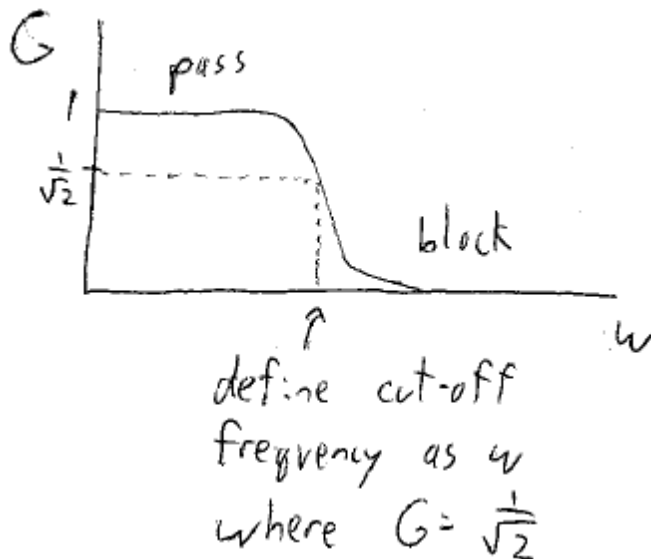 G
pass
1
1/√2
block
w
define cut-off
frequency as w
where G = 1/√2